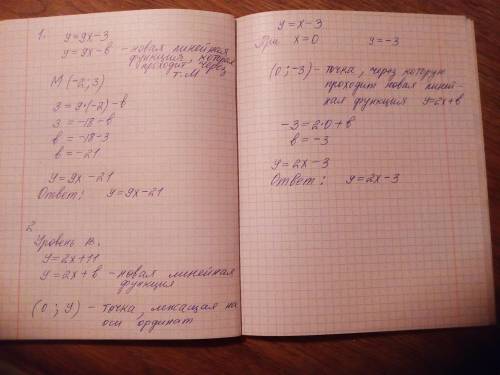 1. y=9x-3
y=9x-в - новая линейная
функция, которая
проходит через
т. М
М (-2; 3)
3=9·(-2)-в
3=-18-в
в=-18-3
в=-21
y=9x-21
Ответ: y=9x-21
2
Уровень В.
y=2x+11
y=2x+в - новая линейная
функция
(0; y) - точка, лежащая на
оси ординат
y=x-3
При x=0 y=-3
(0; -3) - точка, через которую
проходит новая линей-
ная функция y=2x+в
-3=2·0+в
в=-3
y=2x-3
Ответ: y=2x-3